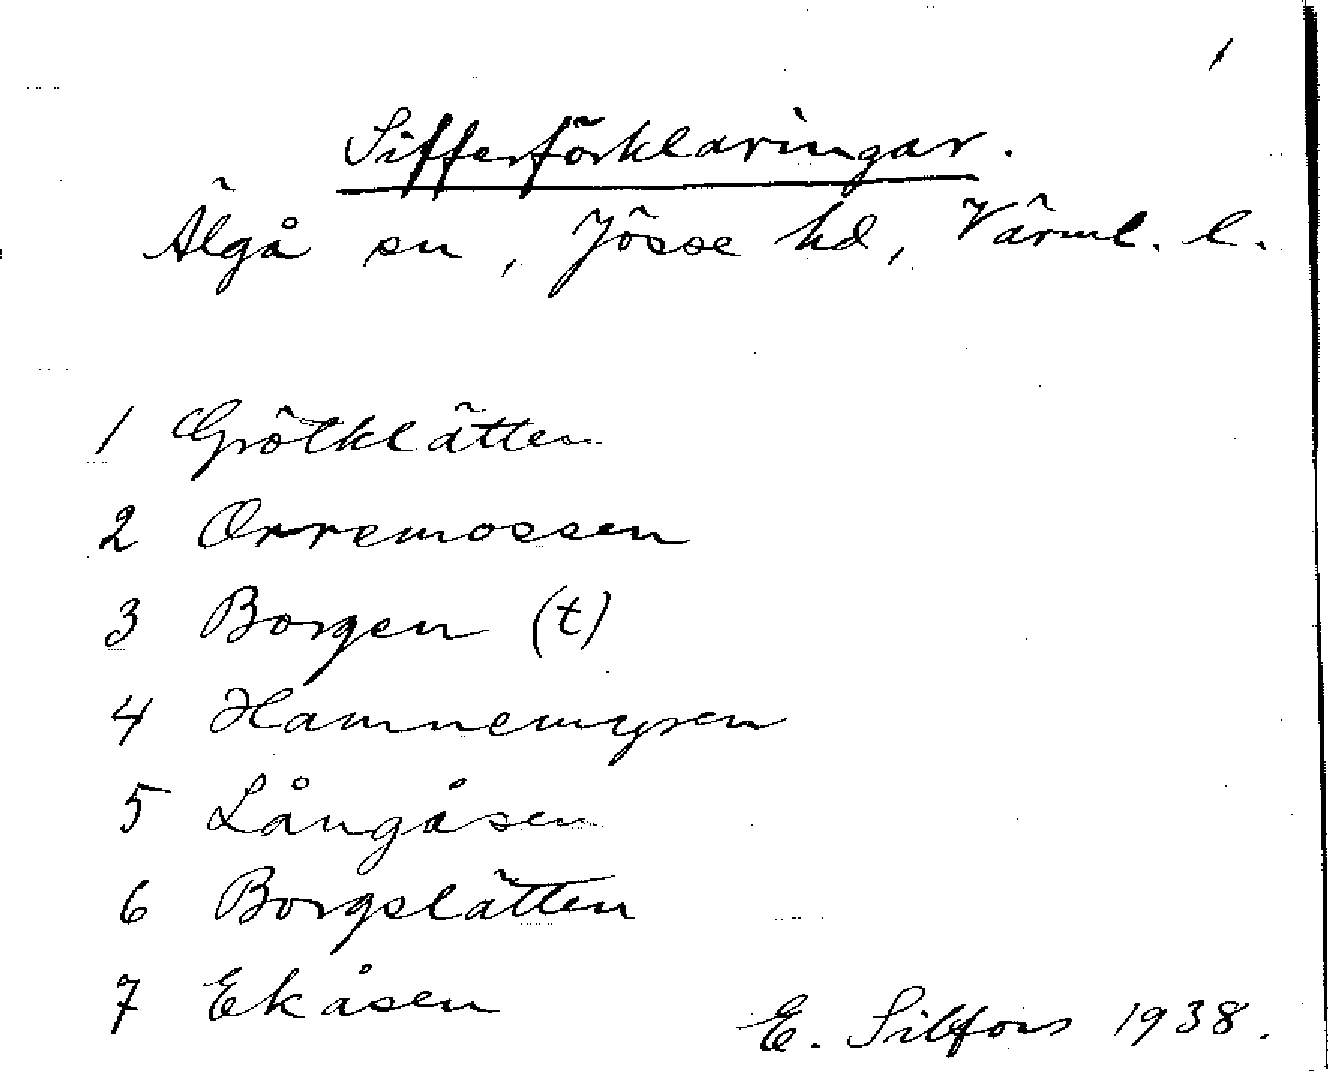 1
Sifferförklaringar.
Älgå sn, Jösse hd, Värml. l.
1 Grötklätten
2 Orremossen
3 Borgen (t)
4 Hamnemyren
5 Långåsen
6 Borgslätten
7 Ekåsen
E. Silfors 1938.